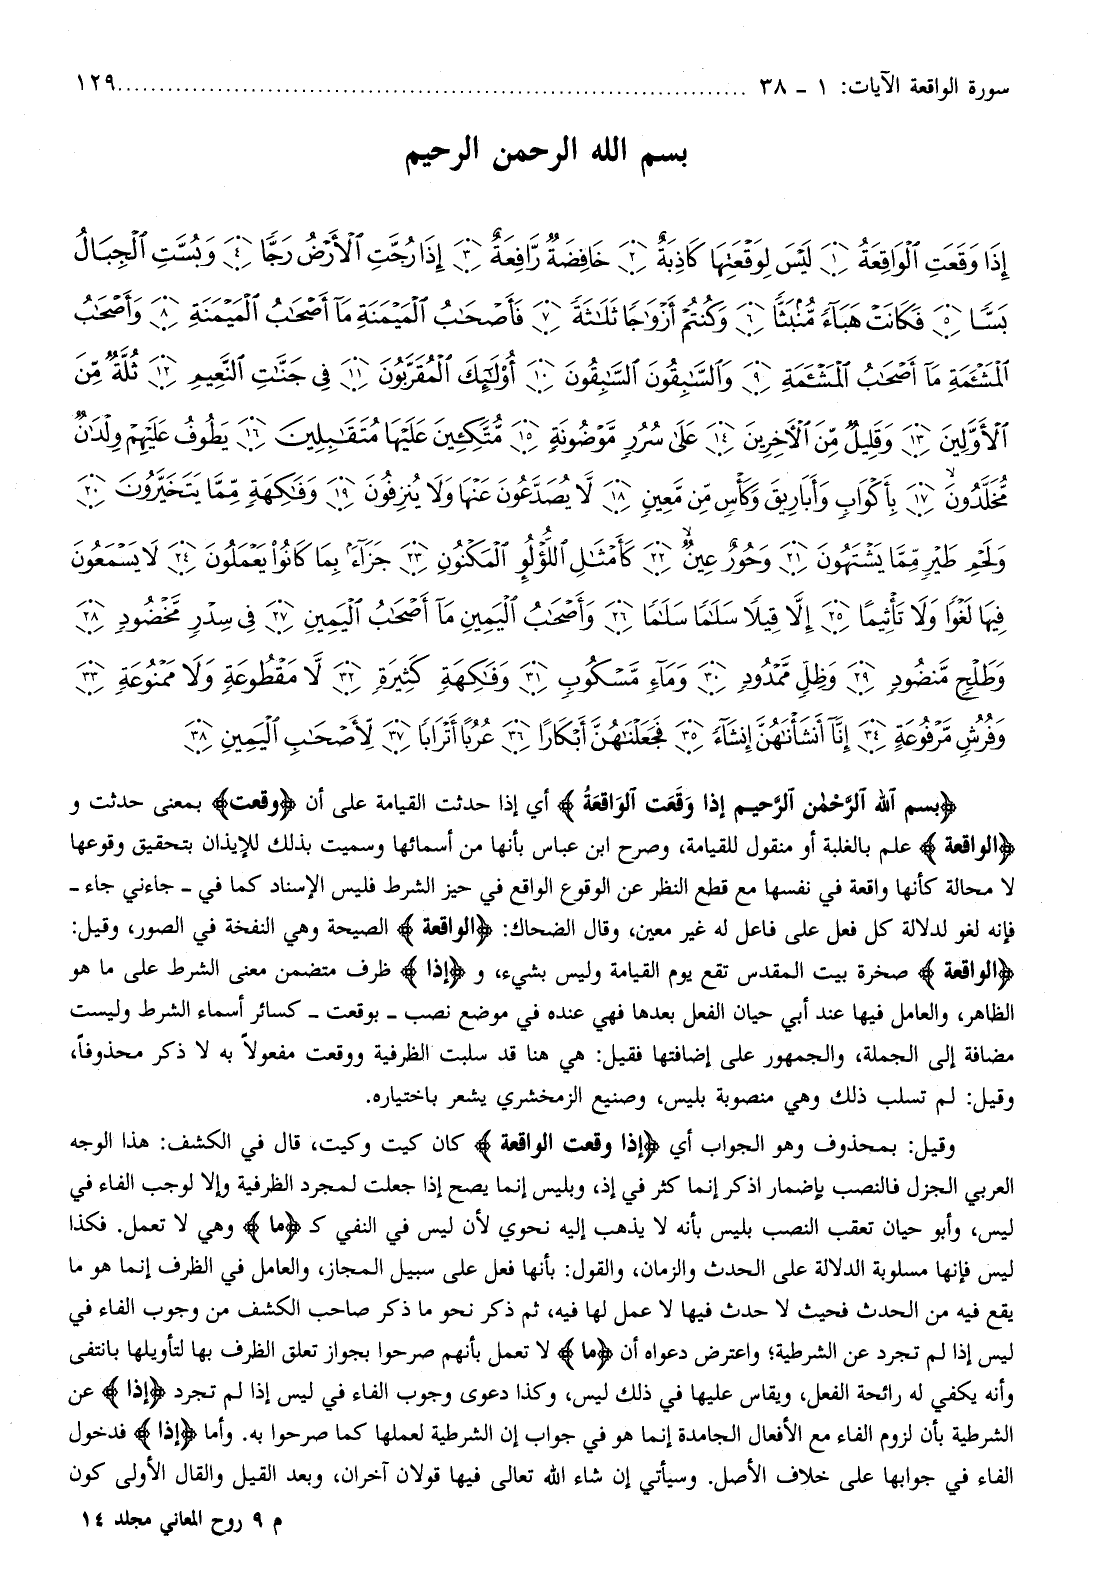 سورة الواقعة الآيات: ١ - ٣٨ ........................................................................ ١٢٩
بسم الله الرحمن الرحيم
إِذَا وَقَعَتِ ٱلْوَاقِعَةُ ﴿١﴾ لَيْسَ لِوَقْعَتِهَا كَاذِبَةٌ ﴿٢﴾ خَافِضَةٌ رَّافِعَةٌ ﴿٣﴾ إِذَا رُجَّتِ ٱلْأَرْضُ رَجًّا ﴿٤﴾ وَبُسَّتِ ٱلْجِبَالُ
بَسًّا ﴿٥﴾ فَكَانَتْ هَبَآءً مُّنۢبَثًّا ﴿٦﴾ وَكُنتُمْ أَزْوَٰجًا ثَلَٰثَةً ﴿٧﴾ فَأَصْحَٰبُ ٱلْمَيْمَنَةِ مَآ أَصْحَٰبُ ٱلْمَيْمَنَةِ ﴿٨﴾ وَأَصْحَٰبُ
ٱلْمَشْـَٔمَةِ مَآ أَصْحَٰبُ ٱلْمَشْـَٔمَةِ ﴿٩﴾ وَٱلسَّٰبِقُونَ ٱلسَّٰبِقُونَ ﴿١٠﴾ أُو۟لَٰٓئِكَ ٱلْمُقَرَّبُونَ ﴿١١﴾ فِى جَنَّٰتِ ٱلنَّعِيمِ ﴿١٢﴾ ثُلَّةٌ مِّنَ
ٱلْأَوَّلِينَ ﴿١٣﴾ وَقَلِيلٌ مِّنَ ٱلْءَاخِرِينَ ﴿١٤﴾ عَلَىٰ سُرُرٍ مَّوْضُونَةٍ ﴿١٥﴾ مُّتَّكِـِٔينَ عَلَيْهَا مُتَقَٰبِلِينَ ﴿١٦﴾ يَطُوفُ عَلَيْهِمْ وِلْدَٰنٌ
مُّخَلَّدُونَ ﴿١٧﴾ بِأَكْوَابٍ وَأَبَارِيقَ وَكَأْسٍ مِّن مَّعِينٍ ﴿١٨﴾ لَّا يُصَدَّعُونَ عَنْهَا وَلَا يُنزِفُونَ ﴿١٩﴾ وَفَٰكِهَةٍ مِّمَّا يَتَخَيَّرُونَ ﴿٢٠﴾
وَلَحْمِ طَيْرٍ مِّمَّا يَشْتَهُونَ ﴿٢١﴾ وَحُورٌ عِينٌ ﴿٢٢﴾ كَأَمْثَٰلِ ٱللُّؤْلُؤِ ٱلْمَكْنُونِ ﴿٢٣﴾ جَزَآءًۢ بِمَا كَانُوا۟ يَعْمَلُونَ ﴿٢٤﴾ لَا يَسْمَعُونَ
فِيهَا لَغْوًا وَلَا تَأْثِيمًا ﴿٢٥﴾ إِلَّا قِيلًا سَلَٰمًا سَلَٰمًا ﴿٢٦﴾ وَأَصْحَٰبُ ٱلْيَمِينِ مَآ أَصْحَٰبُ ٱلْيَمِينِ ﴿٢٧﴾ فِى سِدْرٍ مَّخْضُودٍ ﴿٢٨﴾
وَطَلْحٍ مَّنضُودٍ ﴿٢٩﴾ وَظِلٍّ مَّمْدُودٍ ﴿٣٠﴾ وَمَآءٍ مَّسْكُوبٍ ﴿٣١﴾ وَفَٰكِهَةٍ كَثِيرَةٍ ﴿٣٢﴾ لَّا مَقْطُوعَةٍ وَلَا مَمْنُوعَةٍ ﴿٣٣﴾
وَفُرُشٍ مَّرْفُوعَةٍ ﴿٣٤﴾ إِنَّآ أَنشَأْنَٰهُنَّ إِنشَآءً ﴿٣٥﴾ فَجَعَلْنَٰهُنَّ أَبْكَارًا ﴿٣٦﴾ عُرُبًا أَتْرَابًا ﴿٣٧﴾ لِّأَصْحَٰبِ ٱلْيَمِينِ ﴿٣٨﴾
﴿بسم ٱلله ٱلرَّحْمٰن ٱلرَّحيم إذا وَقَعَت ٱلوَاقعَةُ﴾ أي إذا حدثت القيامة على أن ﴿وقعت﴾ بمعنى حدثت و
﴿الواقعة﴾ علم بالغلبة أو منقول للقيامة، وصرح ابن عباس بأنها من أسمائها وسميت بذلك للإيذان بتحقيق وقوعها
لا محالة كأنها واقعة في نفسها مع قطع النظر عن الوقوع الواقع في حيز الشرط فليس الإسناد كما في - جاءني جاء -
فإنه لغو لدلالة كل فعل على فاعل له غير معين، وقال الضحاك: ﴿الواقعة﴾ الصيحة وهي النفخة في الصور، وقيل:
﴿الواقعة﴾ صخرة بيت المقدس تقع يوم القيامة وليس بشيء، و ﴿إذا﴾ ظرف متضمن معنى الشرط على ما هو
الظاهر، والعامل فيها عند أبي حيان الفعل بعدها فهي عنده في موضع نصب - بوقعت - كسائر أسماء الشرط وليست
مضافة إلى الجملة، والجمهور على إضافتها فقيل: هي هنا قد سلبت الظرفية ووقعت مفعولاً به لا ذكر محذوفاً،
وقيل: لم تسلب ذلك وهي منصوبة بليس، وصنيع الزمخشري يشعر باختياره.
وقيل: بمحذوف وهو الجواب أي ﴿إذا وقعت الواقعة﴾ كان كيت وكيت، قال في الكشف: هذا الوجه
العربي الجزل فالنصب بإضمار اذكر إنما كثر في إذ، وبليس إنما يصح إذا جعلت لمجرد الظرفية وإلا لوجب الفاء في
ليس، وأبو حيان تعقب النصب بليس بأنه لا يذهب إليه نحوي لأن ليس في النفي كـ ﴿ما﴾ وهي لا تعمل. فكذا
ليس فإنها مسلوبة الدلالة على الحدث والزمان، والقول: بأنها فعل على سبيل المجاز، والعامل في الظرف إنما هو ما
يقع فيه من الحدث فحيث لا حدث فيها لا عمل لها فيه، ثم ذكر نحو ما ذكر صاحب الكشف من وجوب الفاء في
ليس إذا لم تجرد عن الشرطية؛ واعترض دعواه أن ﴿ما﴾ لا تعمل بأنهم صرحوا بجواز تعلق الظرف بها لتأويلها بانتفى
وأنه يكفي له رائحة الفعل، ويقاس عليها في ذلك ليس، وكذا دعوى وجوب الفاء في ليس إذا لم تجرد ﴿إذا﴾ عن
الشرطية بأن لزوم الفاء مع الأفعال الجامدة إنما هو في جواب إن الشرطية لعملها كما صرحوا به. وأما ﴿إذا﴾ فدخول
الفاء في جوابها على خلاف الأصل. وسيأتي إن شاء الله تعالى فيها قولان آخران، وبعد القيل والقال الأولى كون
م ٩ روح المعاني مجلد ١٤